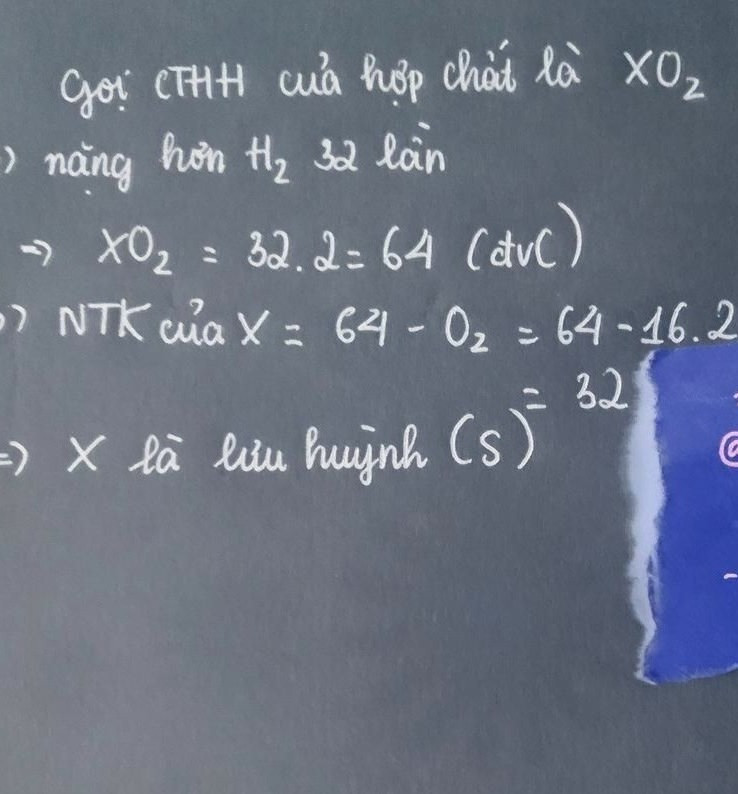 Gọi CTHH của hợp chất là XO₂
) nặng hơn H₂ 32 lần
=> XO₂ = 32.2 = 64 (đvC)
=> NTK của X = 64 - O₂ = 64 - 16.2
= 32
=> X là lưu huỳnh (S)